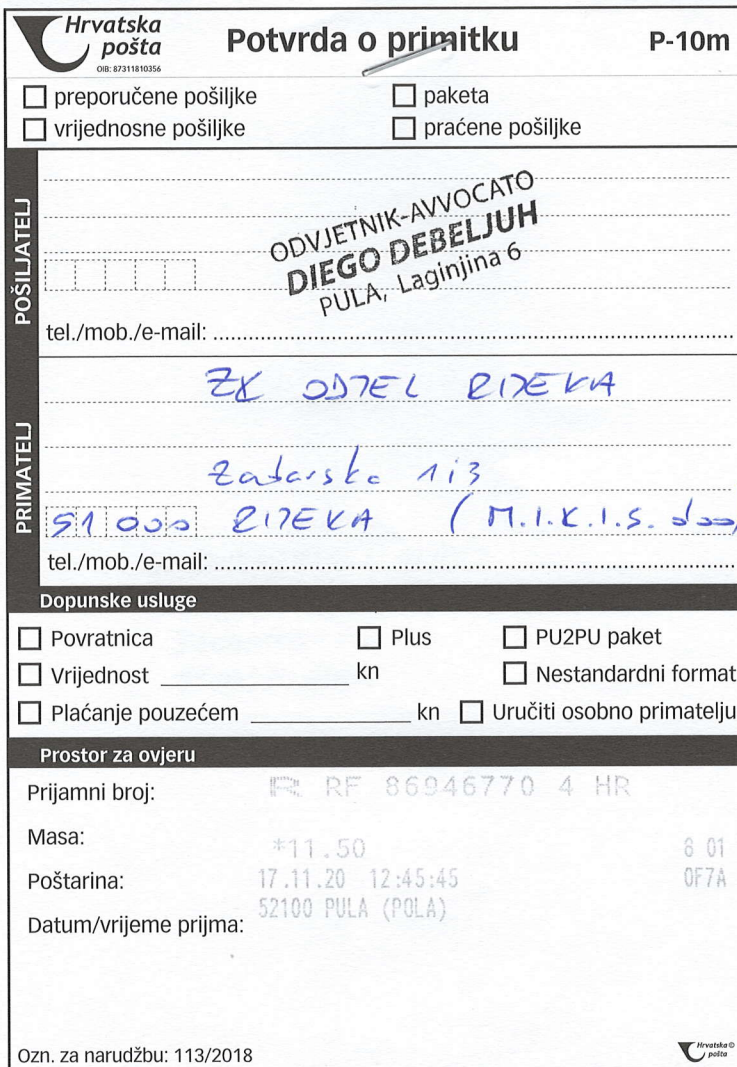 Hrvatska pošta
OIB: 87311810356
Potvrda o primitku
P-10m
preporučene pošiljke
paketa
vrijednosne pošiljke
praćene pošiljke
POŠILJATELJ
ODVJETNIK-AVVOCATO
DIEGO DEBELJUH
PULA, Laginjina 6
tel./mob./e-mail:
PRIMATELJ
ZK ODJEL RIJEKA
Zadarska 1 i 3
51000 RIJEKA (M.I.K.I.S. doo)
tel./mob./e-mail:
Dopunske usluge
Povratnica
Plus
PU2PU paket
Vrijednost kn
Nestandardni format
Plaćanje pouzećem kn
Uručiti osobno primatelju
Prostor za ovjeru
Prijamni broj: R RF 86946770 4 HR
Masa:
*11.50 8 01
Poštarina: 17.11.20 12:45:45 0F7A
Datum/vrijeme prijma: 52100 PULA (POLA)
Ozn. za narudžbu: 113/2018
Hrvatska© pošta